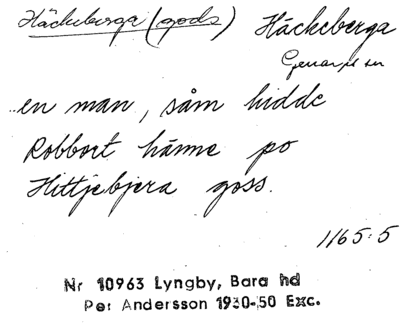 Häckeberga (gods) Häckeberga
Genarps sn
en man, såm hidde
Robbort hänne po
Hittjebjera goss.
1165:5
Nr 10963 Lyngby, Bara hd
Per Andersson 1930-50 Exc.